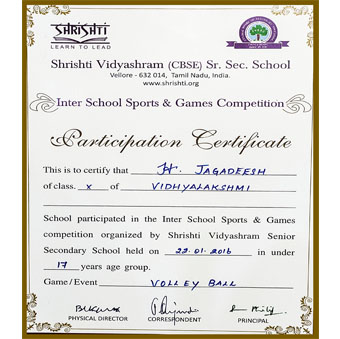 SHRISHTI
LEARN TO LEAD
Shrishti Vidyashram (CBSE) Sr. Sec. School
Vellore - 632 014, Tamil Nadu, India.
www.shrishti.org
Inter School Sports & Games Competition
Participation Certificate
This is to certify that H. JAGADEESH
of class. X of VIDHYALAKSHMI
School participated in the Inter School Sports & Games
competition organized by Shrishti Vidyashram Senior
Secondary School held on 22.01.2016 in under
17 years age group.
Game/Event VOLLEY BALL
PHYSICAL DIRECTOR CORRESPONDENT PRINCIPAL